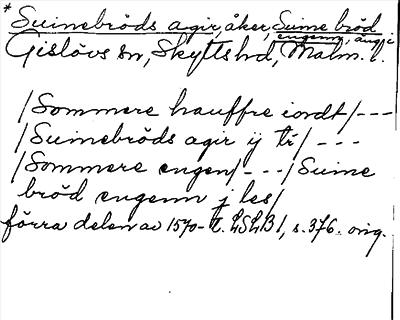 * Suinebröds agir, åker, Suine bröd
engenn, äng, i
Gislövs sn, Skytts hd, Malm. l.
/Sommere hauffre iordt/---
/Suinebröds agir ij tr/ ---
/Sommere engen/ --- /Suine
bröd engenn j les/
förra delen av 1570-t. LSLB1, s. 376. orig.